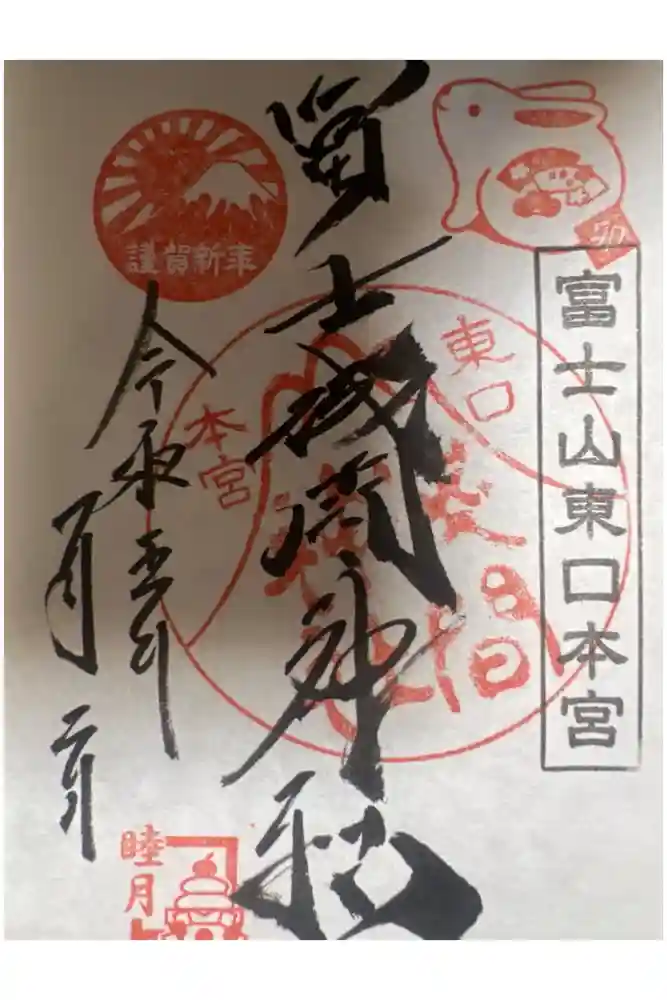 卯
富士山東口本宮
東口
本宮
冨士浅間神社
謹賀新年
令和五年
一月二日
睦月